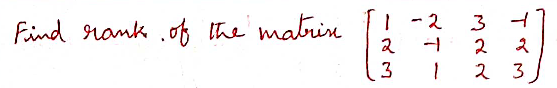 Find rank of the matrix [1 -2 3 -1
2 -1 2 2
3 1 2 3]